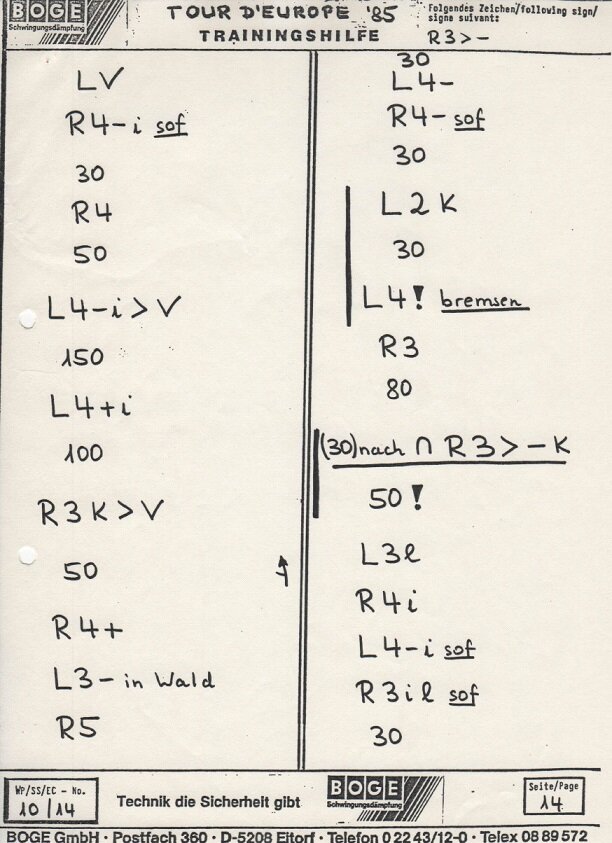 BOGE
Schwingungsdämpfung
TOUR D'EUROPE '85
TRAININGSHILFE
Folgendes Zeichen/following sign/
signe suivant:
R3>-
LV
R4-i sof
30
R4
50
L4-i>V
150
L4+i
100
R3K>V
50
R4+
L3- in Wald
R5
30
L4-
R4- sof
30
L2K
30
L4! bremsen
R3
80
(30) nach ∩ R3>-K
50!
L3l
R4i
L4-i sof
R3il sof
30
WP/SS/EC - No.
10/14
Technik die Sicherheit gibt
BOGE
Schwingungsdämpfung
Seite/Page
14
BOGE GmbH · Postfach 360 · D-5208 Eitorf · Telefon 0 22 43/12-0 · Telex 08 89 572